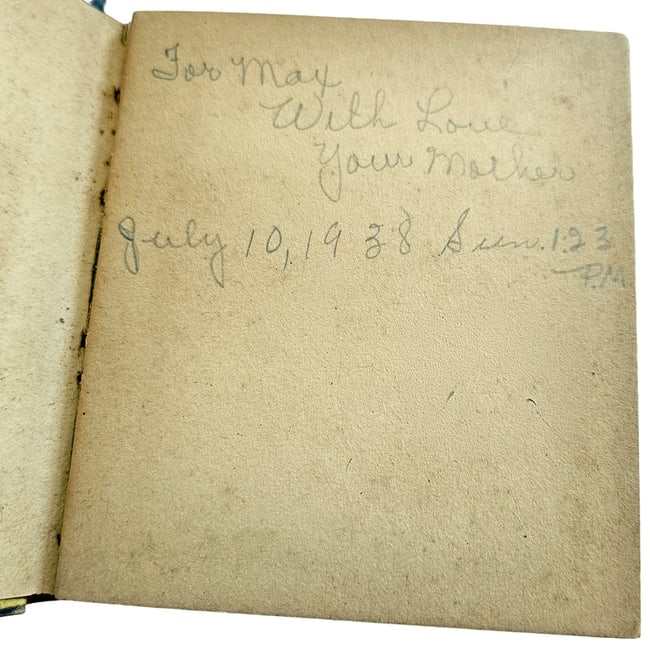 For Max
With Love
Your Mother
July 10, 1938 Sun. 1:23
P.M.